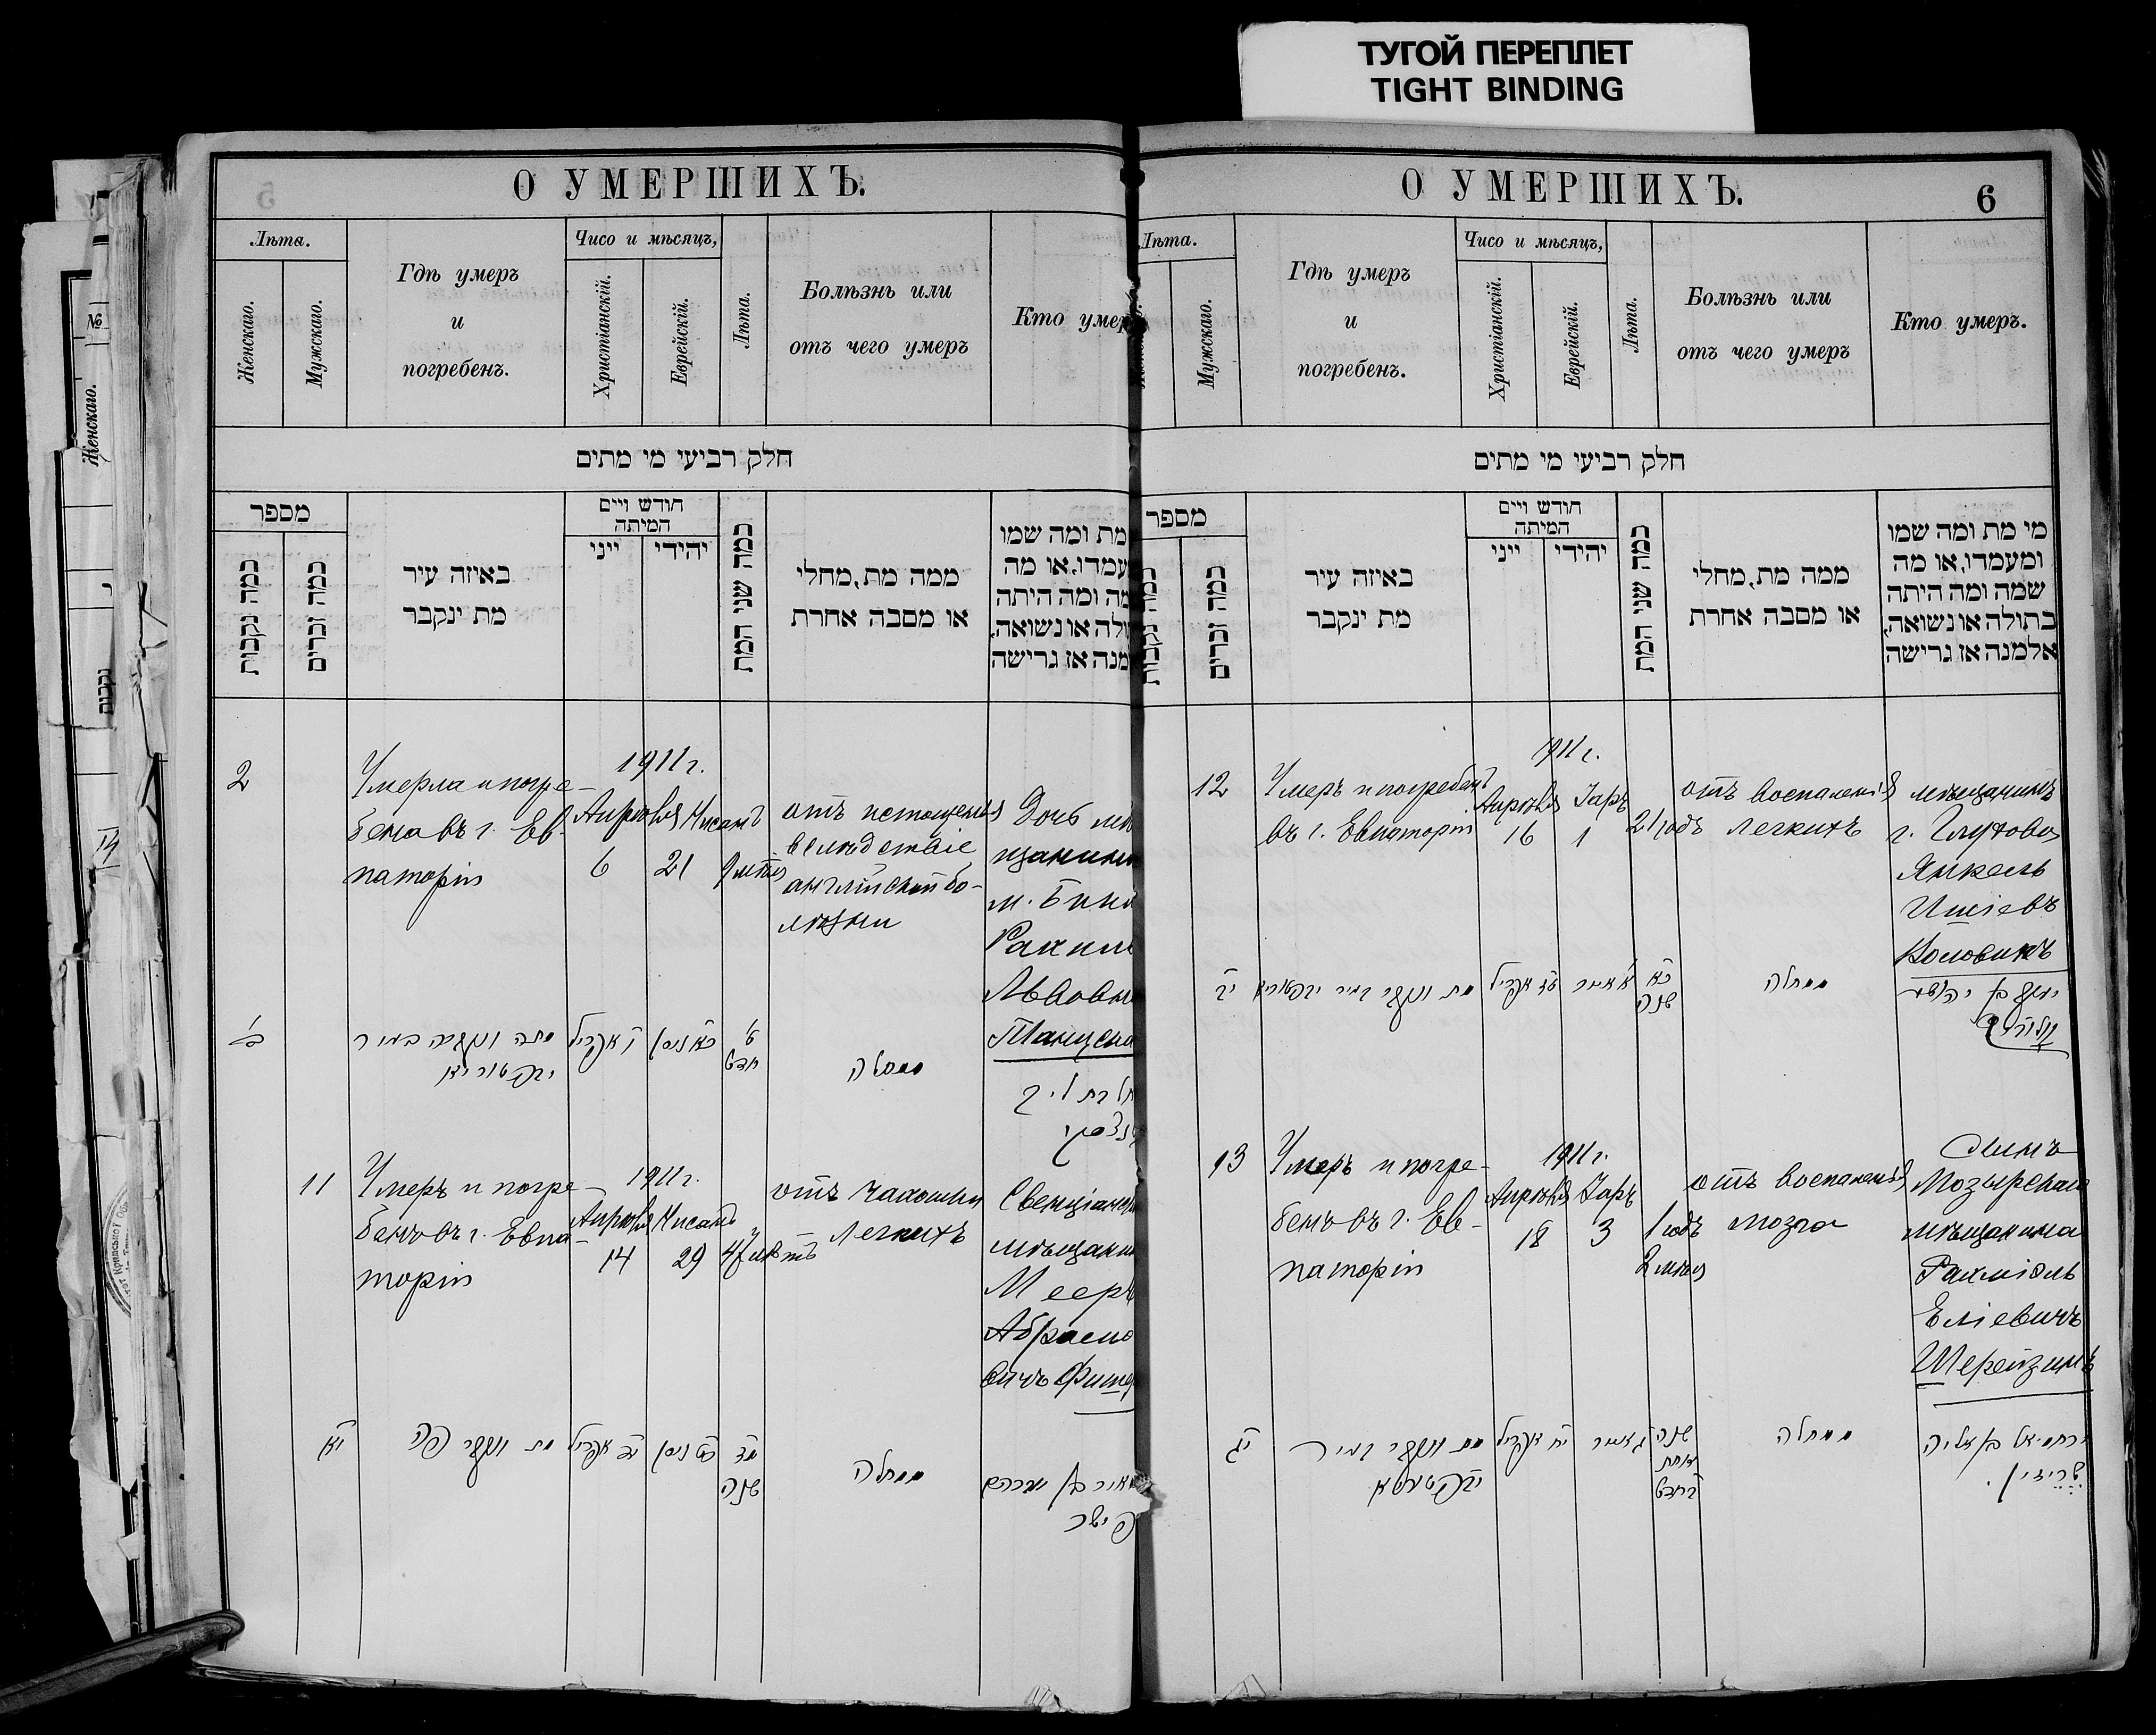 ТУГОЙ ПЕРЕПЛЕТ
TIGHT BINDING
О УМЕРШИХЪ.
Лѣта.
Женскаго.
Мужскаго.
Гдѣ умеръ
и
погребенъ.
Чисо и мѣсяцъ,
Христіанскій.
Еврейскій.
Лѣта.
Болѣзнь или
отъ чего умеръ
Кто умер
חלק רביעי מי מתים
מספר
כמה נקבות
כמה זכרים
באיזה עיר
מת ינקבר
חודש ויים
המיתה
ייני
יהודי
כמה שני המת
ממה מת, מחלי
או מסבה אחרת
מת ומה שמו
עמדו, או מה
מה ומה היתה
ולה או נשואה,
מנה אז גרישה
2
Умерла и погре-
бена въ г. Ев-
паторіи
1911 г.
Апрѣля
6
Нисанъ
21
9 мѣс
отъ истощенія
вслѣдствіе
англійской бо-
лѣзни
Дочь мѣ
щанина
Рахиль
Львовна
ב
כא ניסן
ו אפריל
ט
חדש
ממחלה
11
Умеръ и погре-
бенъ въ г. Евпа-
торіи
1911 г.
Апрѣля
14
Нисанъ
29
47 лѣтъ
отъ чахотки
легкихъ
мѣщанин
Мееръ
Абрамо
вичъ Фишер
יא
מת ונקבר פה
כט ניסן
יד אפריל
שנה
ממחלה
מאיר בן אברהם
פישר
О УМЕРШИХЪ.
6
Лѣта.
Мужскаго.
Гдѣ умеръ
и
погребенъ.
Чисо и мѣсяцъ,
Христіанскій.
Еврейскій.
Лѣта.
Болѣзнь или
отъ чего умеръ
Кто умеръ.
חלק רביעי מי מתים
מספר
כמה נקבות
כמה זכרים
באיזה עיר
מת ינקבר
חודש ויים
המיתה
ייני
יהודי
כמה שני המת
ממה מת, מחלי
או מסבה אחרת
מי מת ומה שמו
ומעמדו, או מה
שמה ומה היתה
בתולה או נשואה,
אלמנה אז גרישה
12
Умеръ и погребенъ
въ г. Евпаторіи
1911 г.
Апрѣля
16
Іаръ
1
21 годъ
отъ воспаленія
легкихъ
мѣщанинъ
г. Глухова
Янкель
Воловикъ
יב
טז אפריל
א אייר
כא
שנה
ממחלה
יעקב בן יהושע
13
Умеръ и погре-
бенъ въ г. Ев-
паторіи
1911 г.
Апрѣля
18
Іаръ
3
1 годъ
2 мѣс
отъ воспаленія
мозга
Сынъ
Мозырскаго
мѣщанина
Рахміэль
Еліевичъ
Шерейзинъ
יג
יח אפריל
ג אייר
שנה
אחת
ממחלה
ירחמיאל בן אליה
שרייזין.